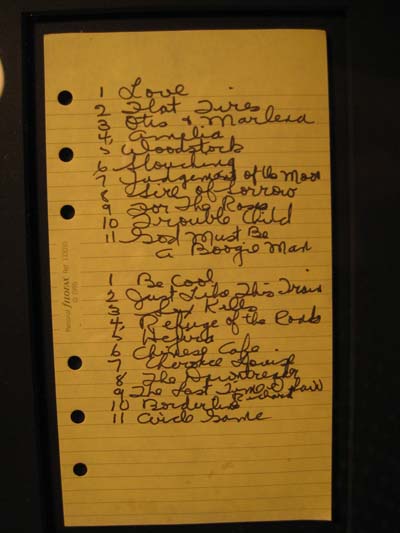 1 Love
2 Flat Tires
3 Otis & Marlena
4 Amelia
5 Woodstock
6 Slouching
7 Judgement of the Moon
8 Sire of Sorrow
9 For The Roses
10 Trouble Child
11 God Must Be
A Boogie Man
1 Be Cool
2 Just Like This Train
3 Sex Kills
4 Refuge of the Roads
5 Hejira
6 Chinese Cafe
7 Cherokee Louise
8 The Dawntreader
9 The Last Time I Saw
Richard
10 Borderline
11 Circle Game
Personal filofax Ref